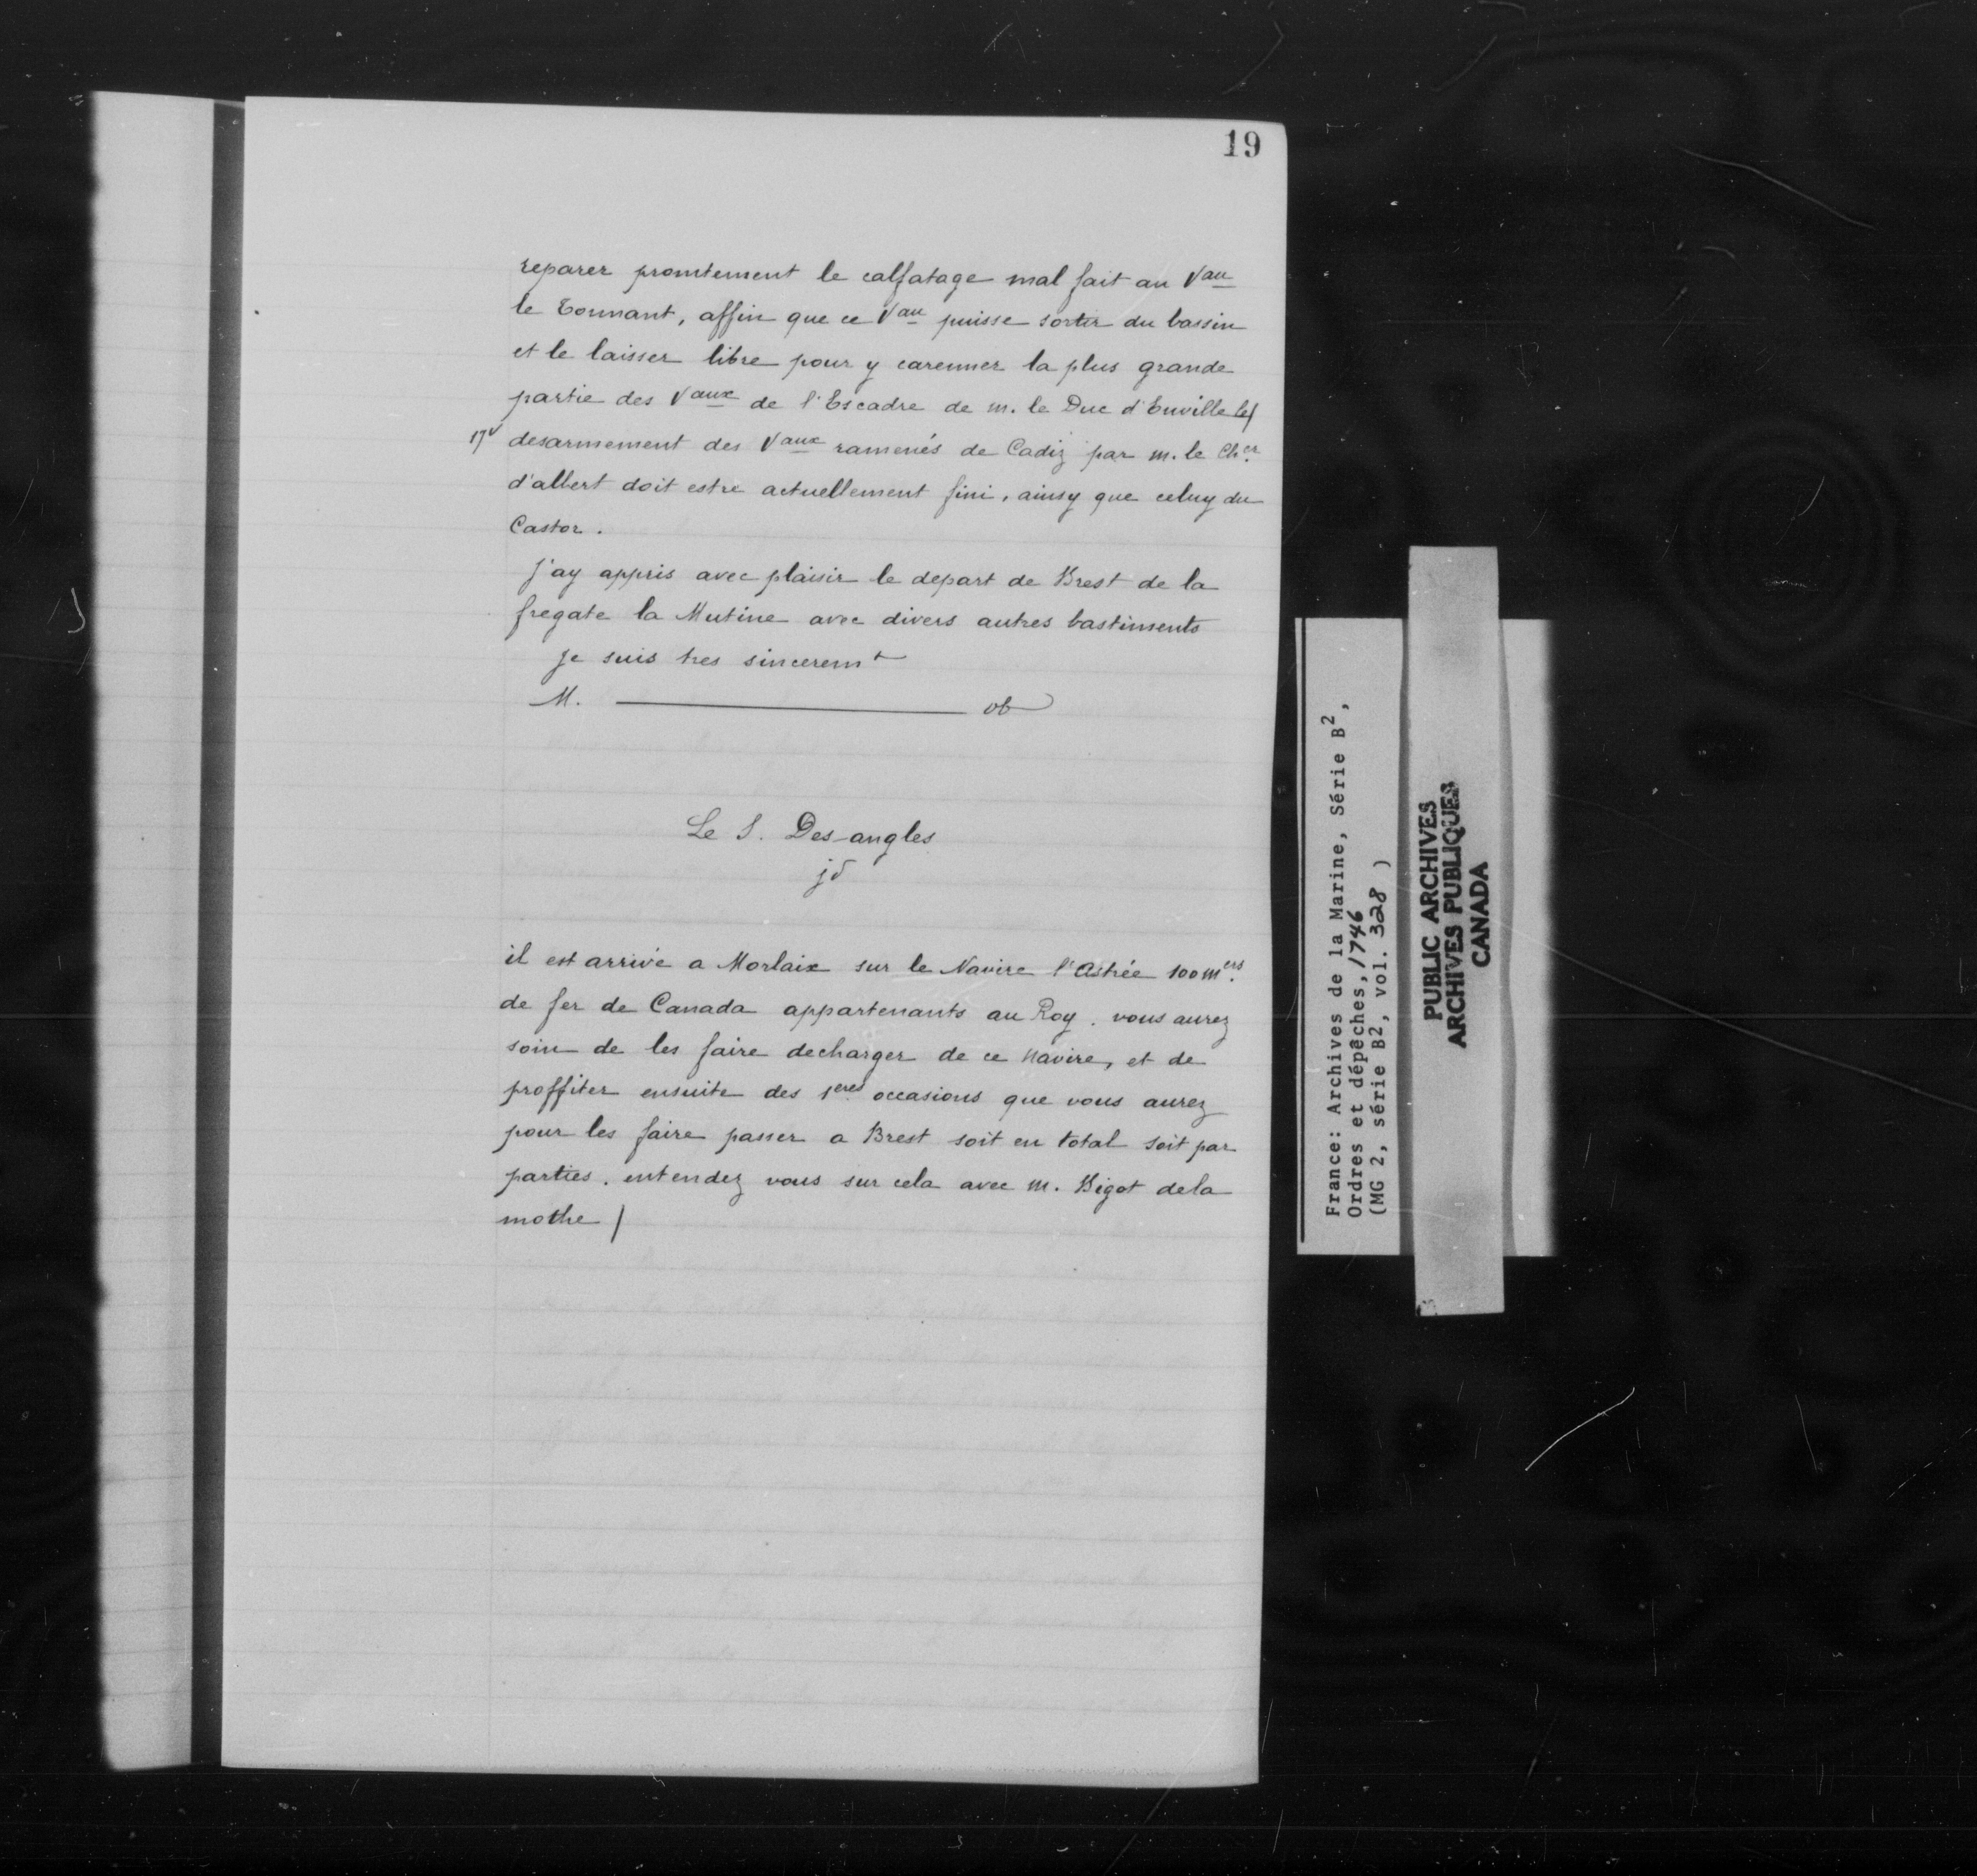 19
reparer promtement le calfatage mal fait au Vau
le Tonnant, affin que ce Vau puisse sortir du bassin
et le laisser libre pour y carenner la plus grande
partie des Vaux de l'Escadre de m. le Duc d'Enville le/
17v desarmement des Vaux ramenés de Cadiz par m. le Cher
d'albert doit estre actuellement fini, ainsy que celuy du
Castor.
J'ay appris avec plaisir le depart de Brest de la
fregate la Mutine avec divers autres bastiments
Je suis tres sinceremt
M. ———— ob
Le S. Des-angles
jd
il est arrivé a Morlaix sur le Navire l'Astrée 100 mers
de fer de Canada appartenants au Roy. vous aurez
soin de les faire decharger de ce Navire, et de
proffiter ensuite des 1eres occasions que vous aurez
pour les faire passer a Brest soit en total soit par
parties. entendez vous sur cela avec m. Bigot dela
mothe /
France: Archives de la Marine, Série B2,
Ordres et dépêches, 1746
(MG 2, série B2, vol. 328 )
PUBLIC ARCHIVES
ARCHIVES PUBLIQUES
CANADA